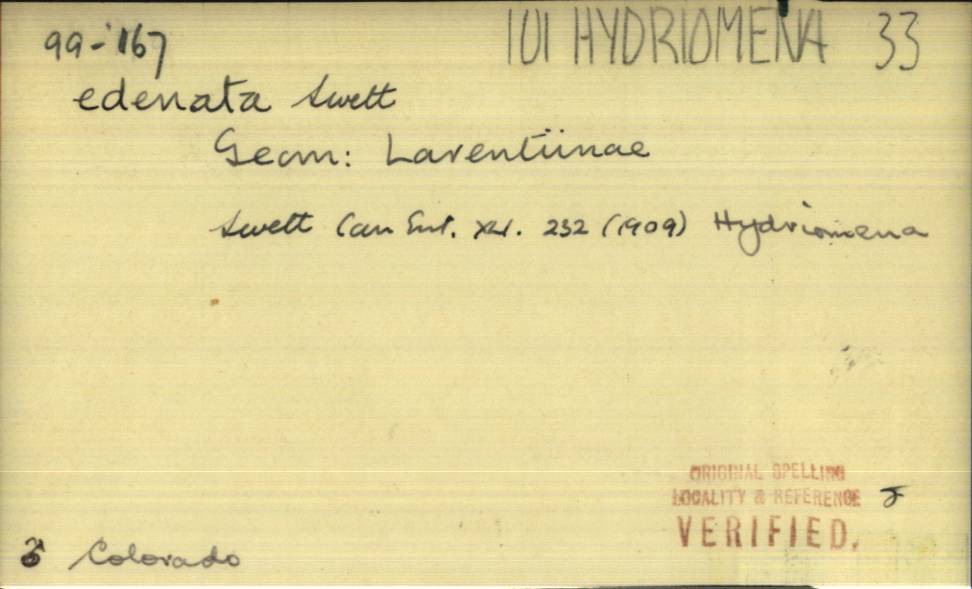 99-167
101 HYDRIOMENA 33
edenata Swett
Geom: Larentiinae
Swett Can Ent. XLI. 232 (1909) Hydriomena
ORIGINAL SPELLING
LOCALITY & REFERENCE
VERIFIED.
♂ Colorado